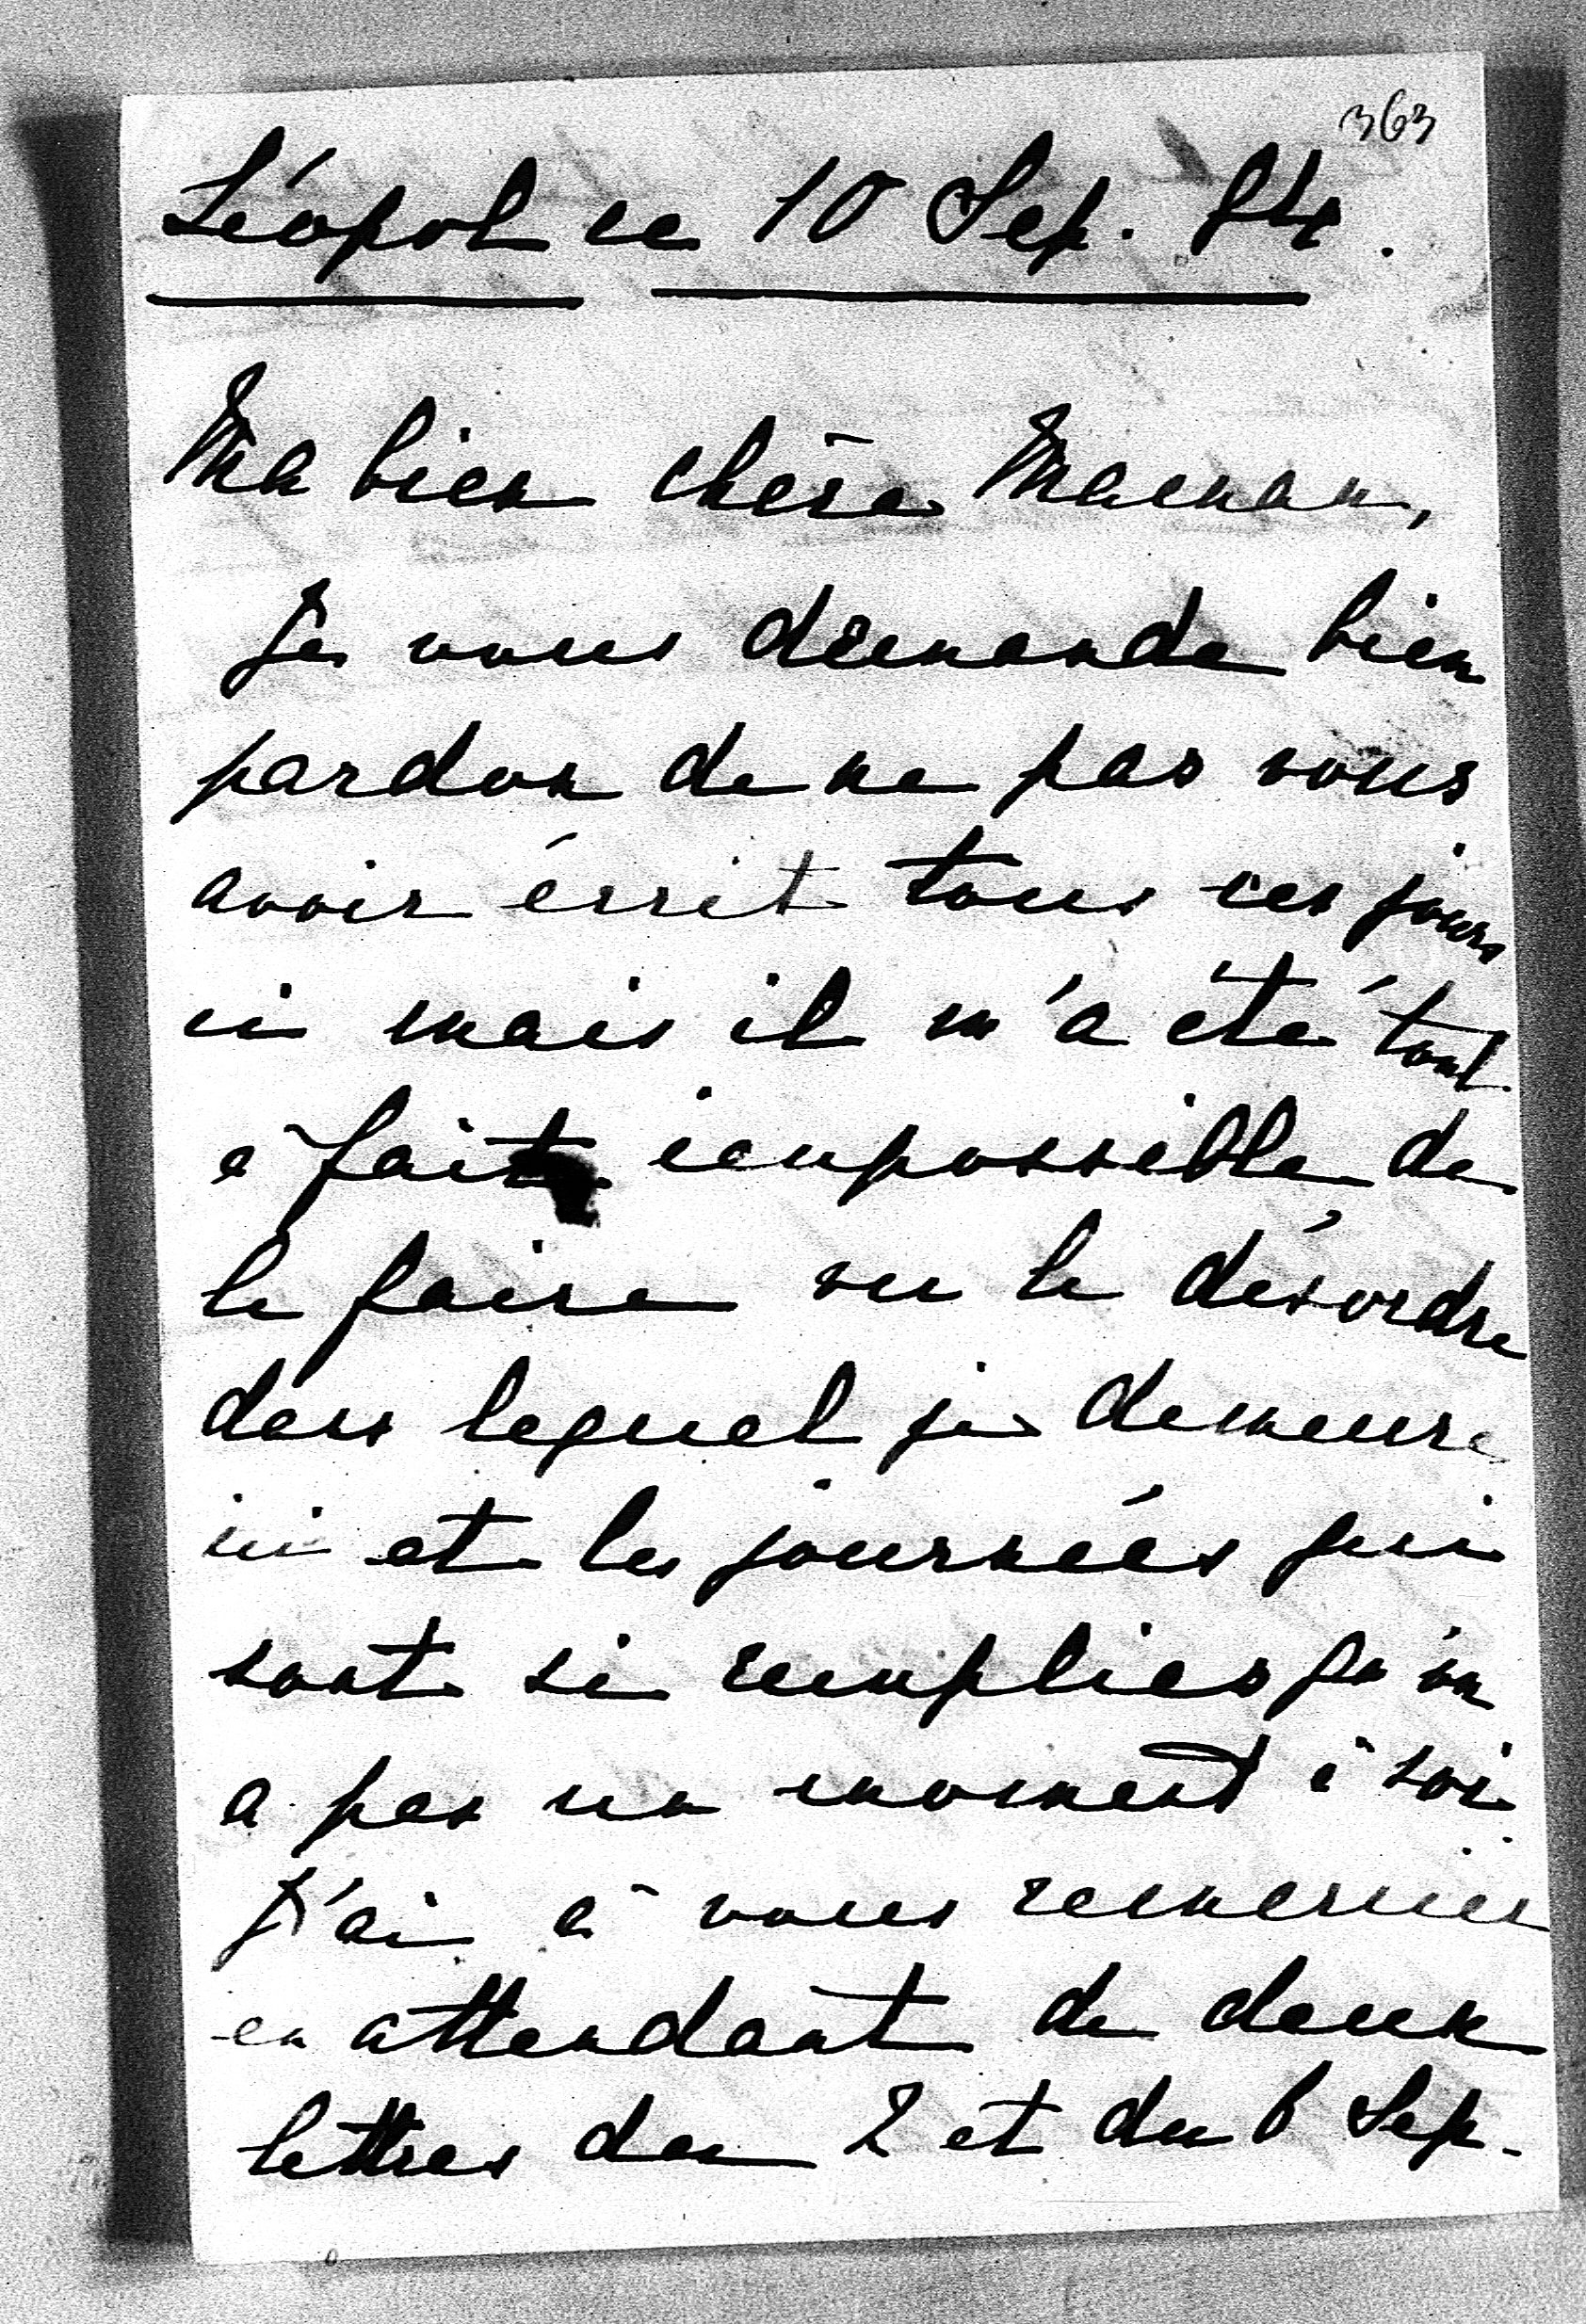 363
Léopol ce 10 Sep. 84.
Ma bien chère Maman,
Je vous demande bien
pardon de ne pas vous
avoir écrit tous ces jours
ci mais il m'a été tout
à fait impossible de
le faire vu le désordre
dans lequel je demeure
ici et les journées qui
sont si remplies qu'on
a pas un moment à soi.
J'ai à vous remercier
en attendant de deux
lettres du 2 et du 6 Sep.